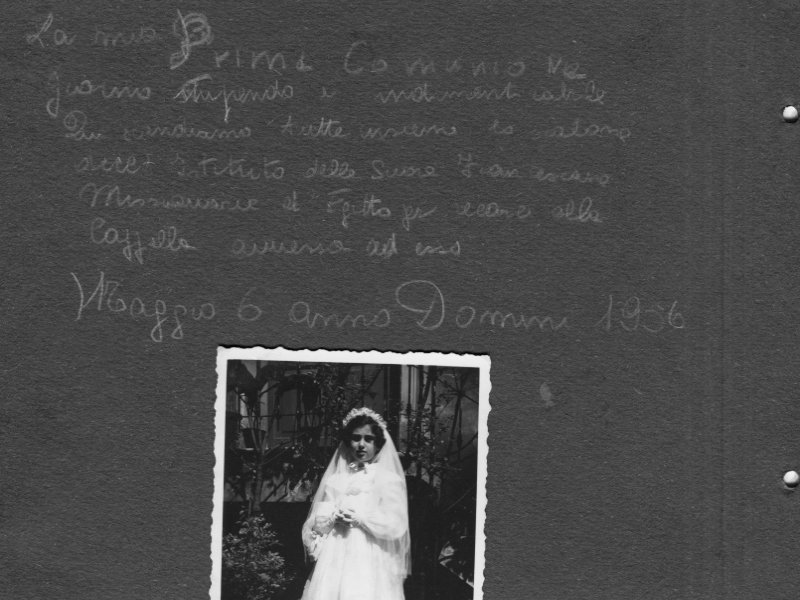 La mia Prima Comunione
giorno stupendo e indimenticabile
Qui scendiamo tutte insieme la
dell' Istituto delle Suore Francescane
Missionarie d' Egitto per recarci alla
Cappella annessa ad esso
Maggio 6 anno Domini 1956